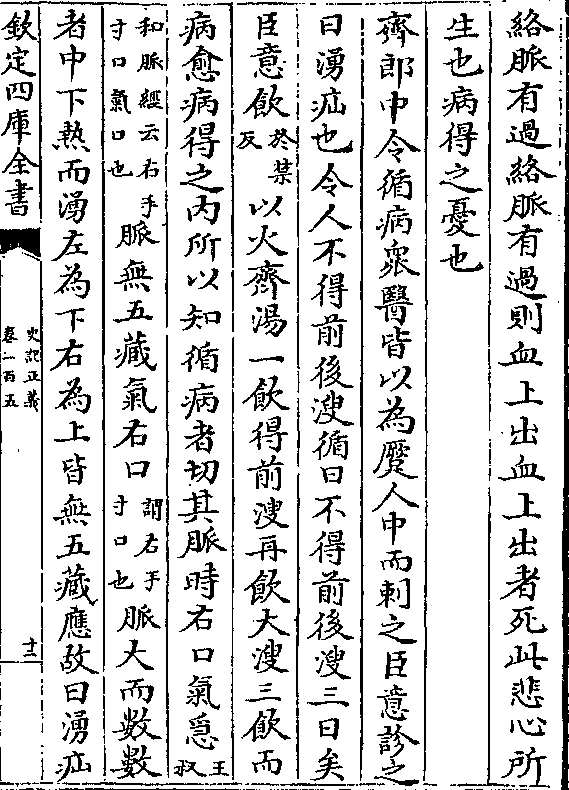 絡脈有過絡脈有過則血上出血上出者死此悲心所
生也病得之憂也
齊郎中令循病衆醫皆以為蹷人中而刺之臣意診之
曰湧疝也令人不得前後溲循曰不得前後溲三日矣
臣意飲於禁反以火齊湯一飲得前溲再飲大溲三飲而
病愈病得之内所以知循病者切其脈時右口氣急王叔
和脈經云右手寸口氣口也脈無五藏氣右口謂右手寸口也脈大而數數
者中下熱而湧左為下右為上皆無五藏應故曰湧疝
欽定四庫全書
史記正義
卷一百五
十二